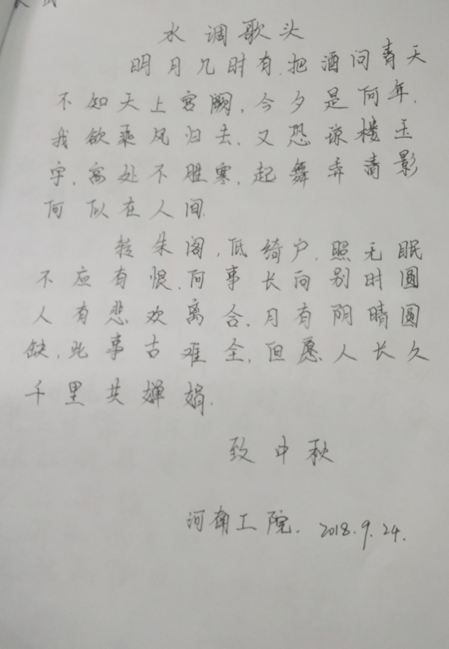 水调歌头
明月几时有,把酒问青天
不知天上宫阙,今夕是何年,
我欲乘风归去,又恐琼楼玉
宇,高处不胜寒,起舞弄清影
何似在人间.
转朱阁,低绮户,照无眠
不应有恨,何事长向别时圆
人有悲欢离合,月有阴晴圆
缺,此事古难全,但愿人长久
千里共婵娟.
致中秋
河南工院. 2018.9.24.